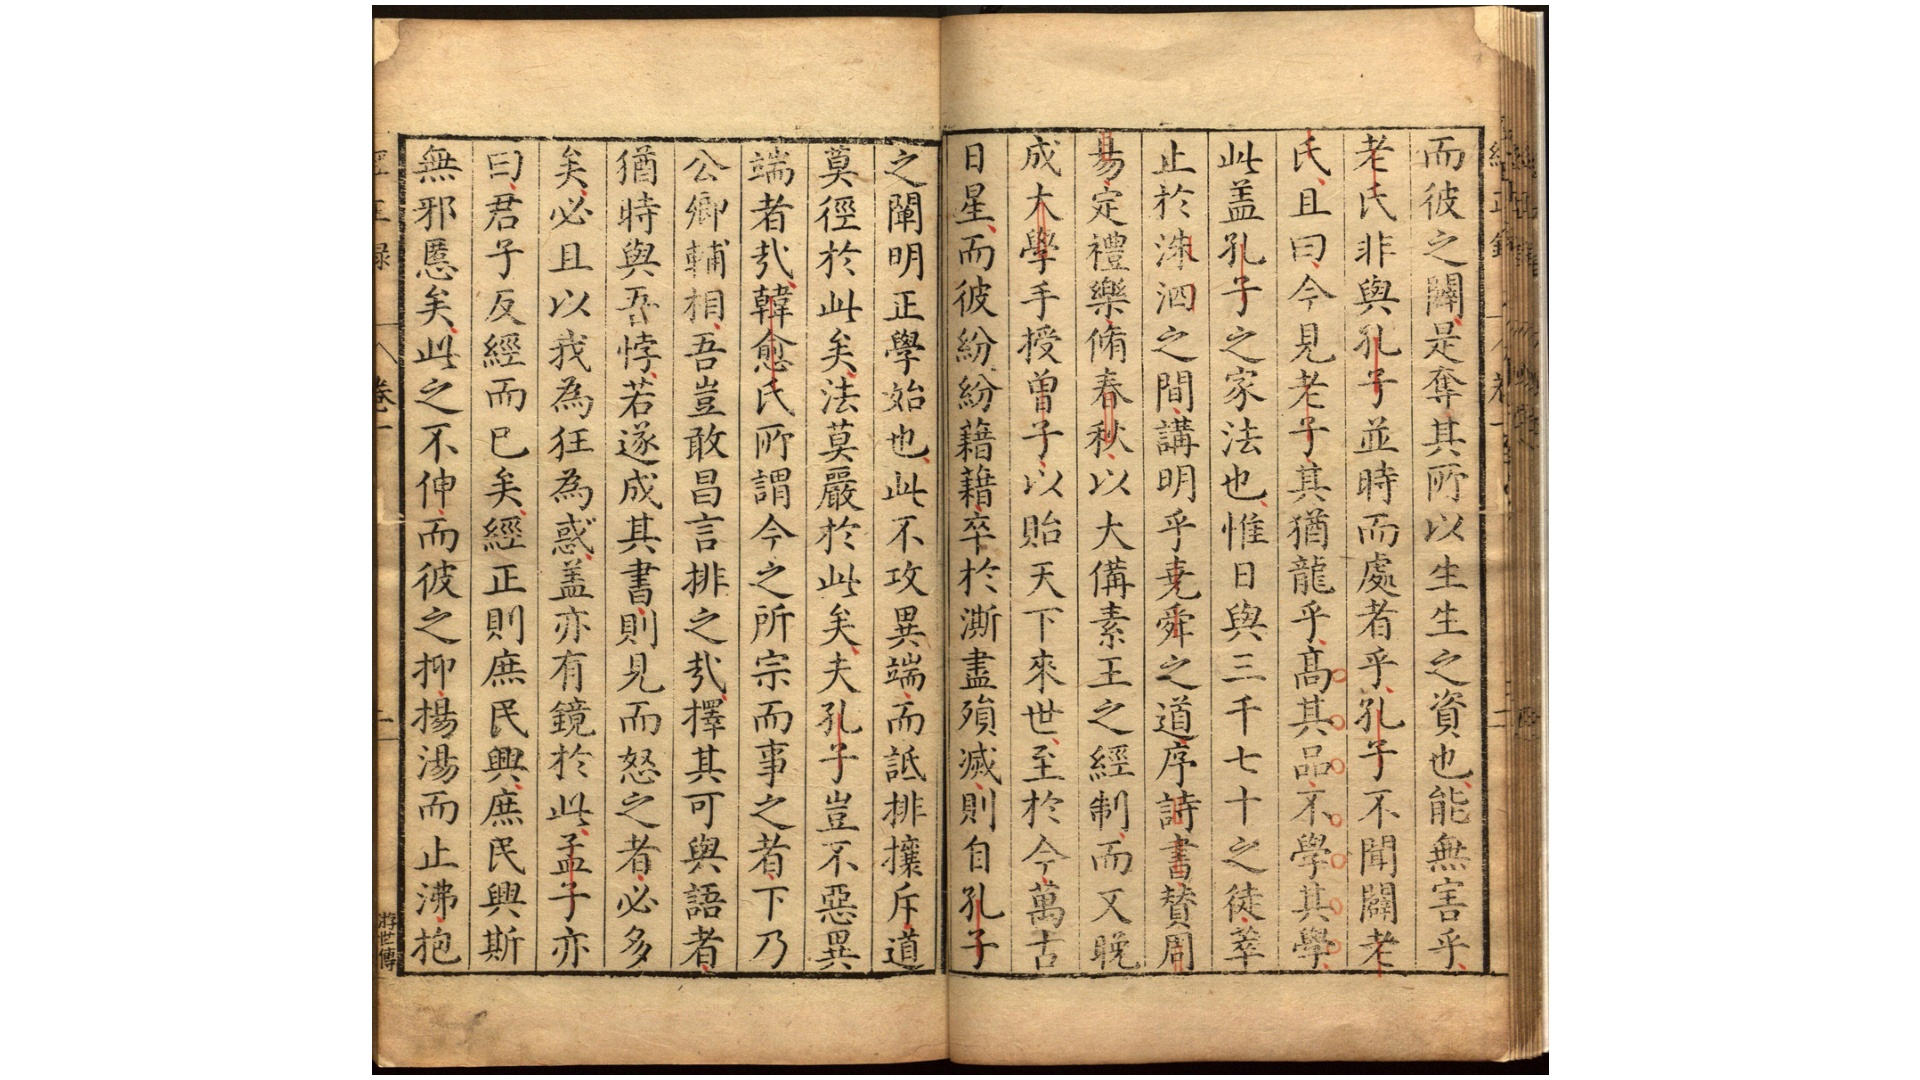 而彼之闢是奪其所以生生之資也能無害乎
老氏非與孔子並時而處者乎孔子不聞闢老
氏且曰今見老子其猶龍乎高其品不學其學
此盖孔子之家法也惟日與三千七十之徒萃
止於洙泗之間講明乎堯舜之道序詩書賛周
易定禮樂脩春秋以大備素王之經制而又晚
成大學手授曾子以貽天下來世至於今萬古
日星而彼紛紛藉藉卒於澌盡殞滅則自孔子
之闡明正學始也此不攻異端而詆排攘斥道
莫徑於此矣法莫嚴於此矣夫孔子豈不惡異
端者㢤韓愈氏所謂今之所宗而事之者下乃
公卿輔相吾豈敢昌言排之㢤擇其可與語者
猶時與吾悖若遂成其書則見而怒之者必多
矣必且以我為狂為惑盖亦有鏡於此孟子亦
曰君子反經而已矣經正則庶民興庶民興斯
無邪慝矣此之不伸而彼之抑揚湯而止沸抱
經正録
卷一
二
游世傳